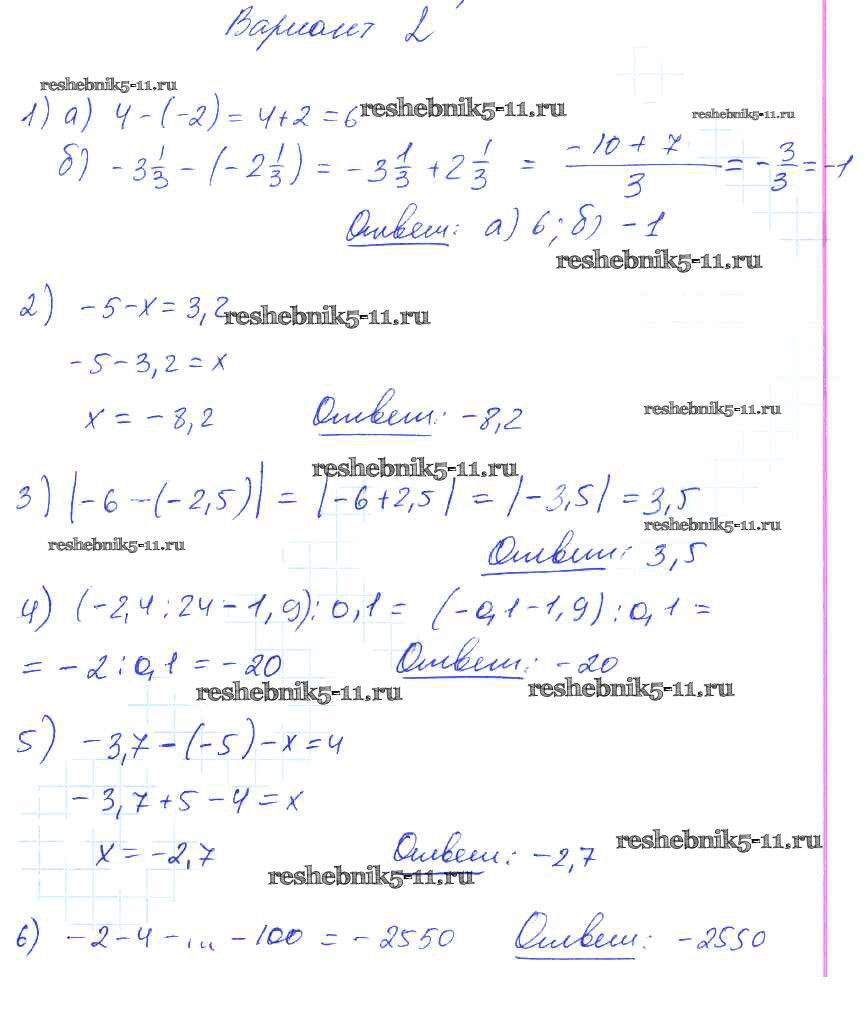 Вариант 2
reshebnik5-11.ru
1) а) 4 - (-2) = 4 + 2 = 6 reshebnik5-11.ru reshebnik5-11.ru
б) -3 1/3 - (-2 1/3) = -3 1/3 + 2 1/3 = (-10 + 7)/3 = -3/3 = -1
Ответ: а) 6; б) -1
reshebnik5-11.ru
2) -5 - x = 3,2 reshebnik5-11.ru
-5 - 3,2 = x
x = -8,2 Ответ: -8,2 reshebnik5-11.ru
reshebnik5-11.ru
3) |-6 - (-2,5)| = |-6 + 2,5| = |-3,5| = 3,5
reshebnik5-11.ru
reshebnik5-11.ru
Ответ: 3,5
4) (-2,4 : 24 - 1,9) : 0,1 = (-0,1 - 1,9) : 0,1 =
= -2 : 0,1 = -20 Ответ: -20
reshebnik5-11.ru reshebnik5-11.ru
5) -3,7 - (-5) - x = 4
-3,7 + 5 - 4 = x
x = -2,7 Ответ: -2,7 reshebnik5-11.ru
reshebnik5-11.ru
6) -2 - 4 - ... - 100 = -2550 Ответ: -2550